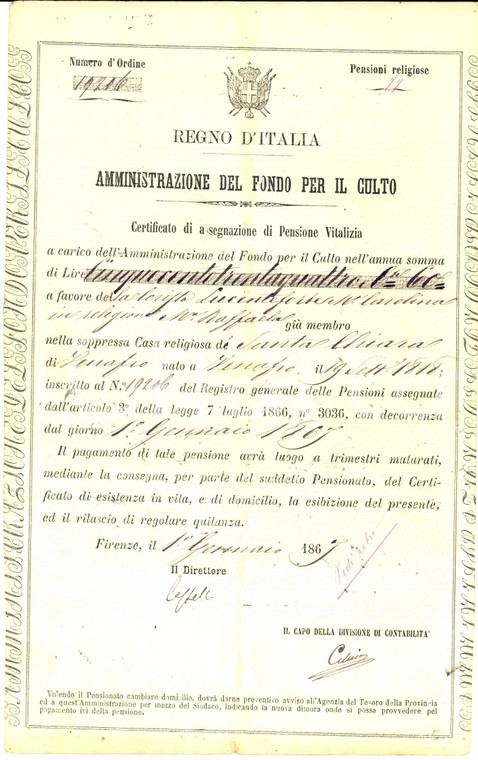 Numero d'Ordine
19206
Pensioni religiose
REGNO D'ITALIA
AMMINISTRAZIONE DEL FONDO PER IL CULTO
Certificato di assegnazione di Pensione Vitalizia
a carico dell'Amministrazione del Fondo per il Culto nell'annua somma
di Lire Cinquecentotrentaquattro,
a favore della Corista Mª Carolina
in religione Mª Raffaela già membro
nella soppressa Casa religiosa di Santa Chiara
di Venafro nato a Venafro il 19
inscritto al N.º 19206 del Registro generale delle Pensioni assegnate
dall'articolo 3º della legge 7 luglio 1866, nº 3036, con decorrenza
dal giorno 1º Gennaio 1867
Il pagamento di tale pensione avrà luogo a trimestri maturati,
mediante la consegna, per parte del suddetto Pensionato, del Certi-
ficato di esistenza in vita, e di domicilio, la esibizione del presente,
ed il rilascio di regolare quitanza.
Firenze, il 1º Gennaio 1867
Il Direttore
IL CAPO DELLA DIVISIONE DI CONTABILITA'
Volendo il Pensionato cambiare domicilio, dovrà darne preventivo avviso all'Agenzia del Tesoro della Provincia
ed a quest'Amministrazione per mezzo del Sindaco, indicando la nuova dimora onde si possa provvedere pel
pagamento ivi della pensione.